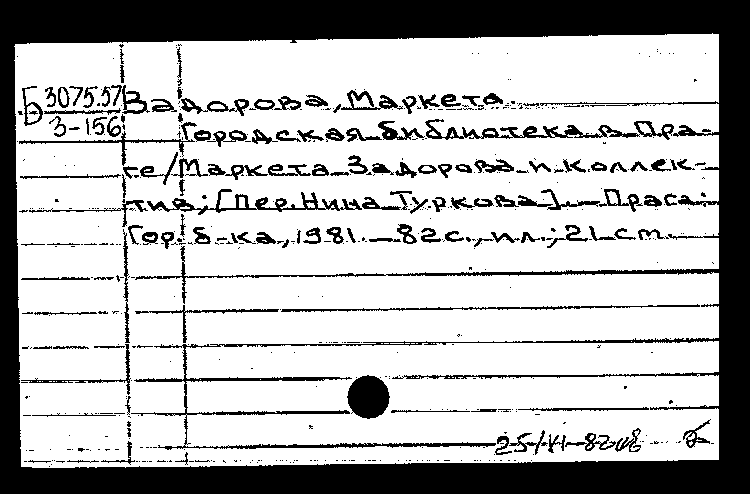 Б 3075.57
З-156
Задорова, Маркета.
Городская библиотека в Пра-
ге / Маркета Задорова и коллек-
тив; [Пер. Нина Туркова]. — Прага:
Гор. б-ка, 1981. — 82 с., ил.; 21 cm.
25/VI-82